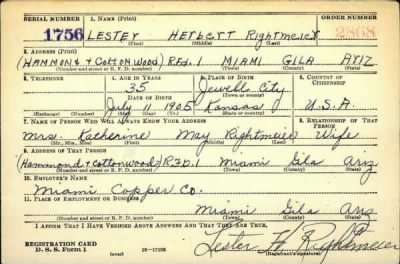 SERIAL NUMBER 1. NAME (Print) ORDER NUMBER
1756 LESTER HERBERT Rightmeier 2868
(First) (Middle) (Last)
2. ADDRESS (Print)
(HAMMOND + COTTONWOOD) R.F.D. 1 MIAMI GILA ARIZ
(Number and street or R. F. D. number) (Town) (County) (State)
3. TELEPHONE 4. AGE IN YEARS 5. PLACE OF BIRTH 6. COUNTRY OF CITIZENSHIP
35 Jewell City
DATE OF BIRTH (Town or county)
July 11 1905 Kansas U.S.A.
(Exchange) (Number) (Mo.) (Day) (Yr.) (State or country)
7. NAME OF PERSON WHO WILL ALWAYS KNOW YOUR ADDRESS 8. RELATIONSHIP OF THAT PERSON
Mrs. Katherine May Rightmeier Wife
(Mr., Mrs., Miss) (First) (Middle) (Last)
9. ADDRESS OF THAT PERSON
(Hammond + Cottonwood) R.F.D. 1 Miami Gila Ariz.
(Number and street or R. F. D. number) (Town) (County) (State)
10. EMPLOYER'S NAME
Miami Copper Co.
11. PLACE OF EMPLOYMENT OR BUSINESS
Miami Gila Ariz.
(Number and street or R. F. D. number) (Town) (County) (State)
I AFFIRM THAT I HAVE VERIFIED ABOVE ANSWERS AND THAT THEY ARE TRUE.
REGISTRATION CARD
D. S. S. Form 1 (over) Lester H. Rightmeier
(Registrant's signature)